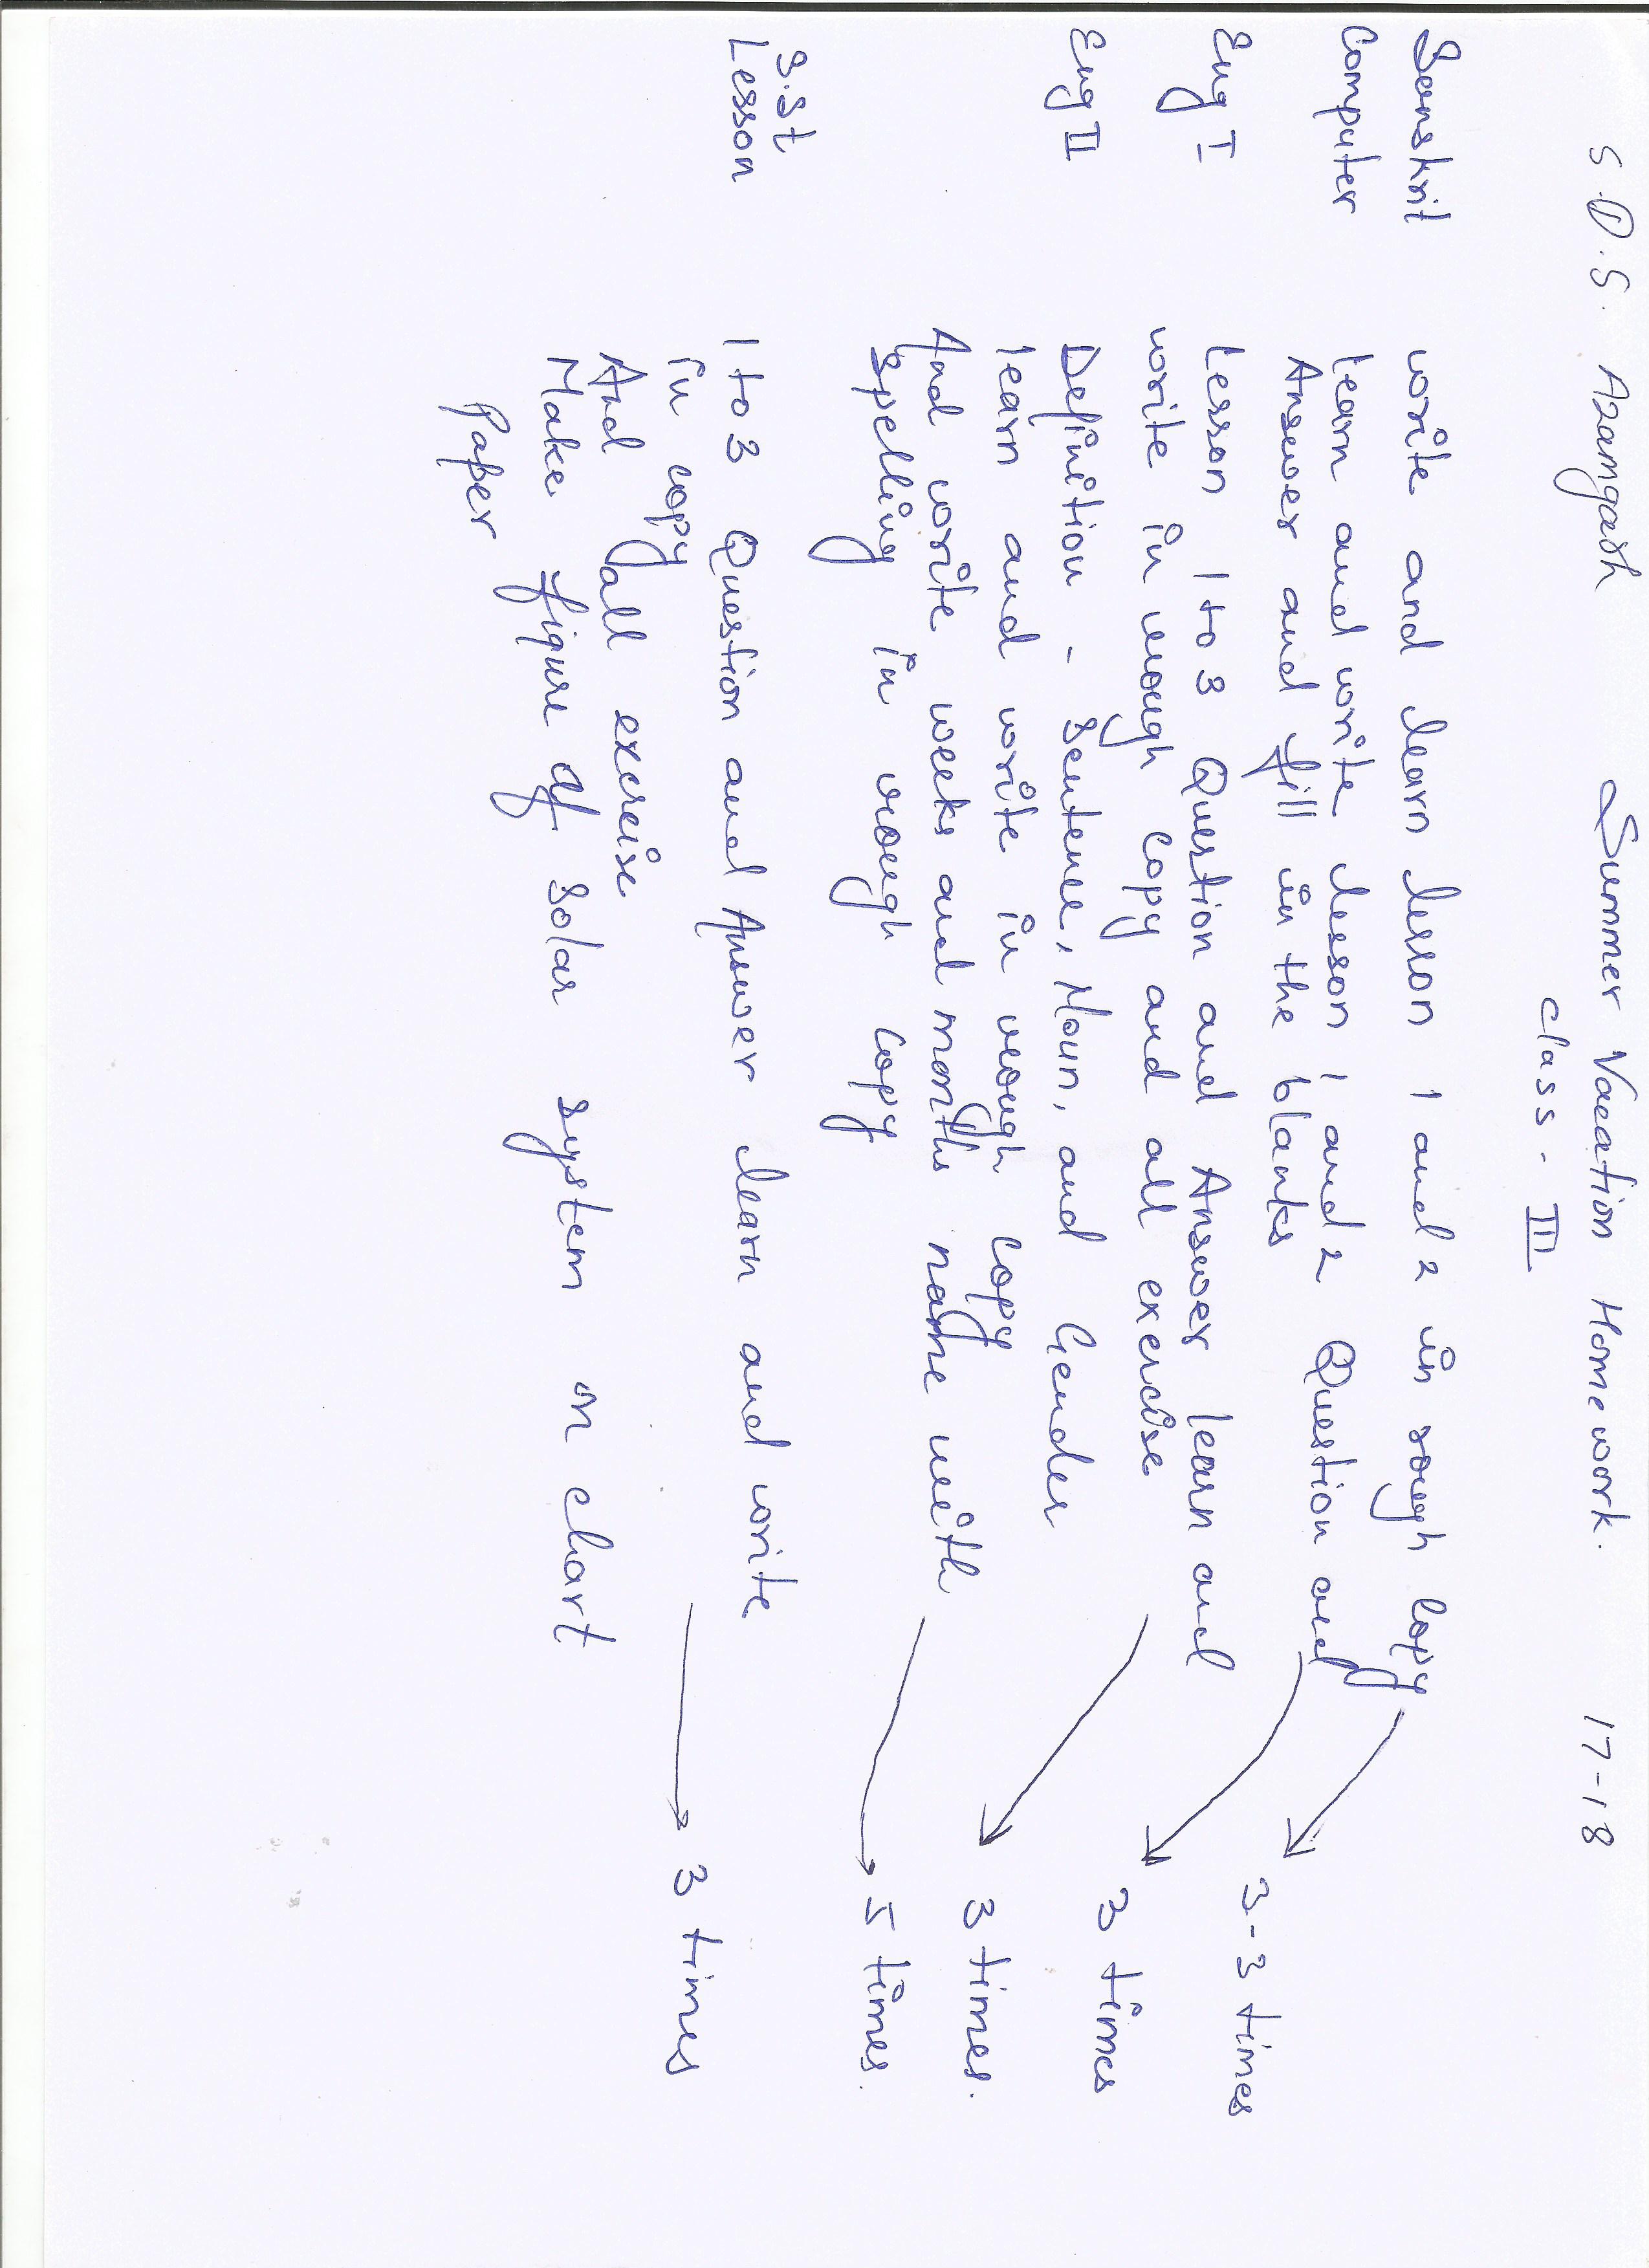 S.D.S. Azamgarh Summer Vacation Homework. 17-18
Class - III
Sanskrit write and learn lesson 1 and 2 in rough Copy
3-3 times
Computer learn and write lesson 1 and 2 Question and
Answer and fill in the blanks
3 times
Eng I Lesson 1 to 3 Question and Answer learn and
write in rough Copy and all exercise
3 times.
Eng II Definition - Sentence, Noun, and Gender
learn and write in rough Copy
And write weeks and months name with
spelling in rough Copy
5 times.
S.St
Lesson 1 to 3 Question and Answer learn and write
in copy
3 times
And all exercise
Make figure of Solar system on chart
Paper